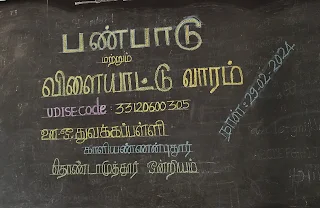 பண்பாடு
மற்றும்
விளையாட்டு வாரம்
UDISE code : 33120600305
ஊ.ஒ.துவக்கப்பள்ளி
காளியண்ணன்புதூர்
தொண்டாமுத்தூர் ஒன்றியம்
நாள் : 29.02.2024